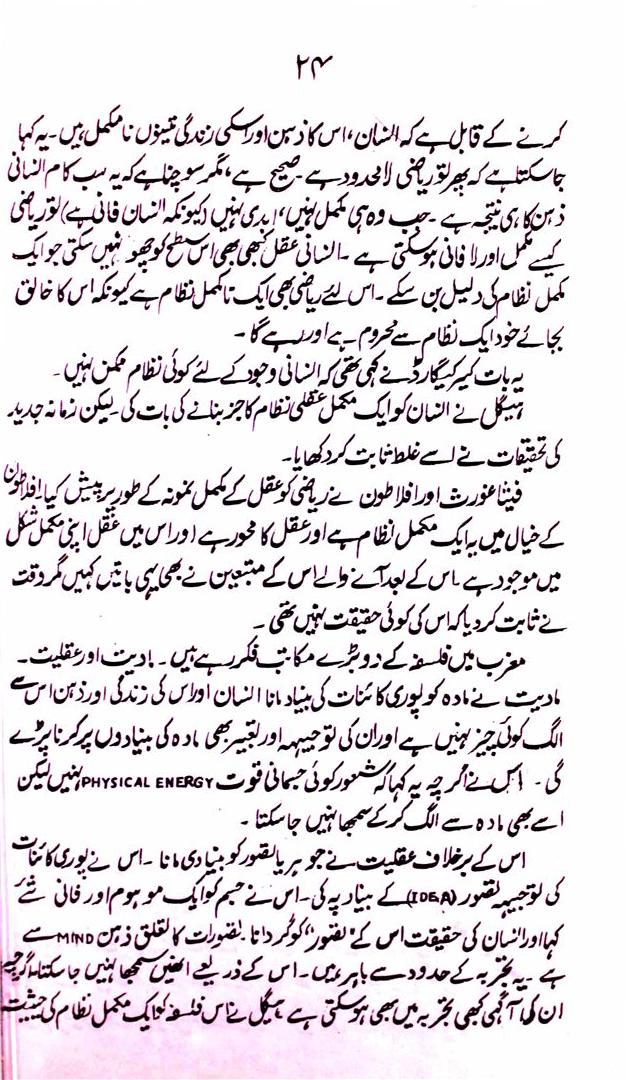 ۲۴
کرنے کے قابل ہے کہ انسان، اس کا ذہن اور اسکی زندگی تینوں نامکمل ہیں۔ یہ کہا
جا سکتا ہے کہ پھر تو ریاضی لامحدود ہے۔ صحیح ہے، مگر سوچنا ہے کہ یہ سب کام انسانی
ذہن کا ہی نتیجہ ہے۔ جب وہ ہی مکمل نہیں، ابدی نہیں (کیونکہ انسان فانی ہے) تو ریاضی
کیسے مکمل اور لافانی ہو سکتی ہے۔ انسانی عقل کبھی بھی اس سطح کو چھو نہیں سکتی جو ایک
مکمل نظام کی دلیل بن سکے۔ اس لئے ریاضی بھی ایک نامکمل نظام ہے کیونکہ اس کا خالق
بجائے خود ایک نظام سے محروم ہے اور رہے گا۔
یہ بات کیرکیگارڈ نے کہی تھی کہ انسانی وجود کے لئے کوئی نظام ممکن نہیں۔
ہیگل نے انسان کو ایک مکمل عقلی نظام کا جز بنانے کی بات کی لیکن زمانہ جدید
کی تحقیقات نے اسے غلط ثابت کر دکھایا۔
فیثاغورث اور افلاطون نے ریاضی کو عقل کے مکمل نمونہ کے طور پر پیش کیا افلاطون
کے خیال میں یہ ایک مکمل نظام ہے اور عقل کا محور ہے (اور اس میں عقل اپنی مکمل شکل
میں موجود ہے۔ اس کے بعد آنے والے اس کے متبعین نے بھی یہی باتیں کہیں مگر وقت
نے ثابت کر دیا کہ اس کی کوئی حقیقت نہیں تھی۔
مغرب میں فلسفہ کے دو بڑے مکاتب فکر رہے ہیں۔ مادیت اور عقلیت۔
مادیت نے مادہ کو پوری کائنات کی بنیاد مانا انسان اور اس کی زندگی اور ذہن اس سے
الگ کوئی چیز نہیں ہے اور ان کی توجیہہ اور تعبیر بھی مادہ کی بنیادوں پر کرنا پڑے
گی۔ اس نے اگرچہ یہ کہا کہ شعور کوئی جسمانی قوت PHYSICAL ENERGY نہیں لیکن
اسے بھی مادہ سے الگ کر کے سمجھا نہیں جا سکتا۔
اس کے برخلاف عقلیت نے جوہر یا تصور کو بنیادی مانا۔ اس نے پوری کائنات
کی توجیہہ تصور (IDEA) کے بنیاد پہ کی۔ اس نے جسم کو ایک موہوم اور فانی شئے
کہا اور انسان کی حقیقت اس کے "تصور" کو گردانا۔ تصورات کا تعلق ذہن MIND سے
ہے۔ یہ تجربہ کے حدود سے باہر ہیں۔ اس کے ذریعے انھیں سمجھا نہیں جا سکتا اگرچہ
ان کی آگہی کبھی تجربہ میں بھی ہو سکتی ہے ہیگل نے اس فلسفہ کو ایک مکمل نظام کی حیثیت